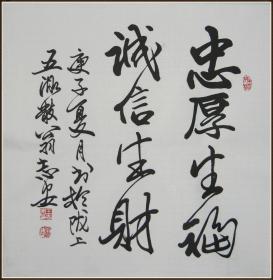 忠厚生福
诚信生财
庚子夏月书於陇上
五凉散翁志安